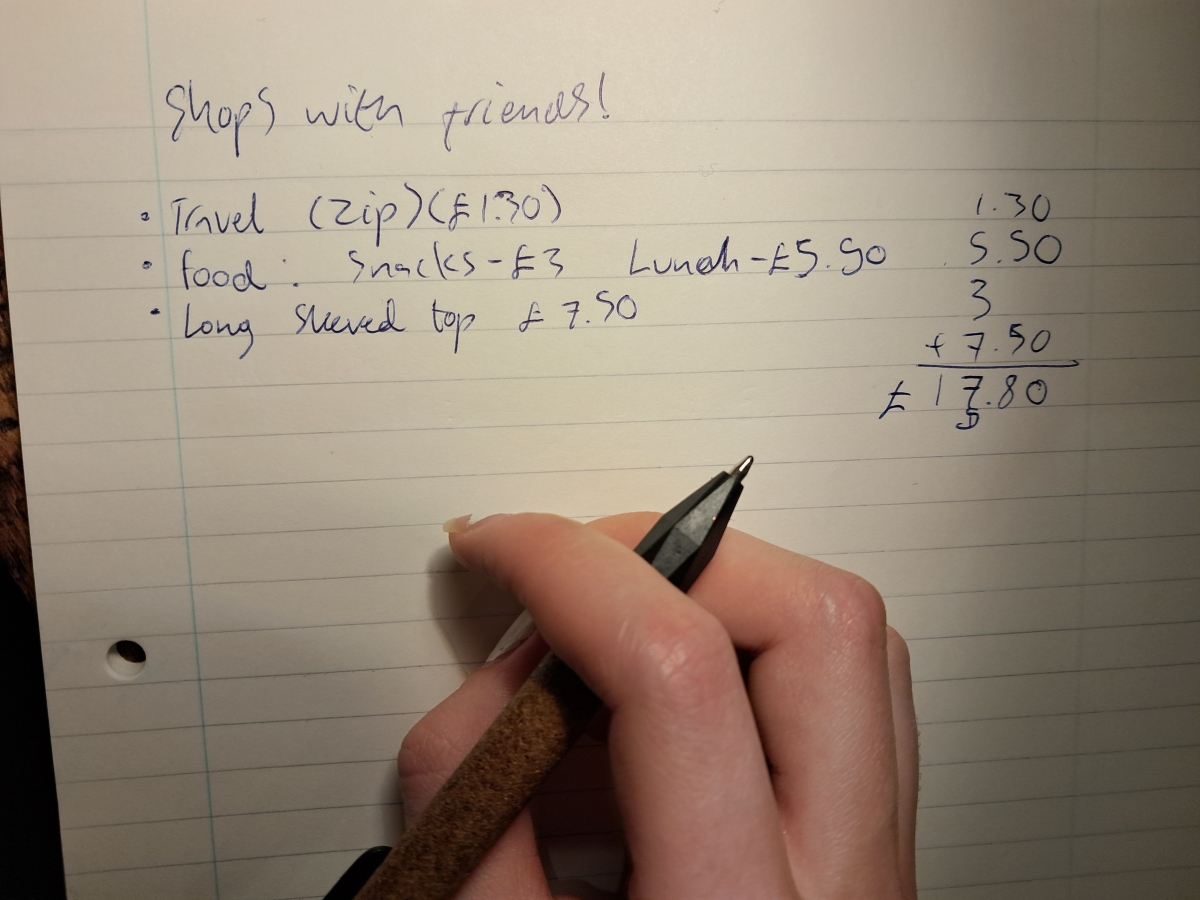 Shops with friends!
• Travel (Zip)(£1.30)
• food: Snacks-£3 Lunch-£5.50
• Long sleeved top £7.50
1.30
5.50
3
+ 7.50
£17.80